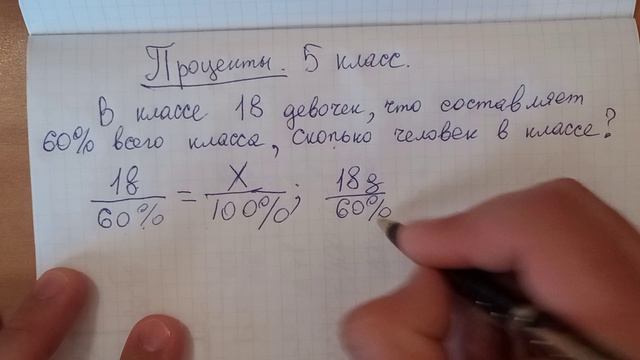 Проценты. 5 класс.
В классе 18 девочек, что составляет
60% всего класса, сколько человек в классе?
18/60% = X/100%; 18д/60%